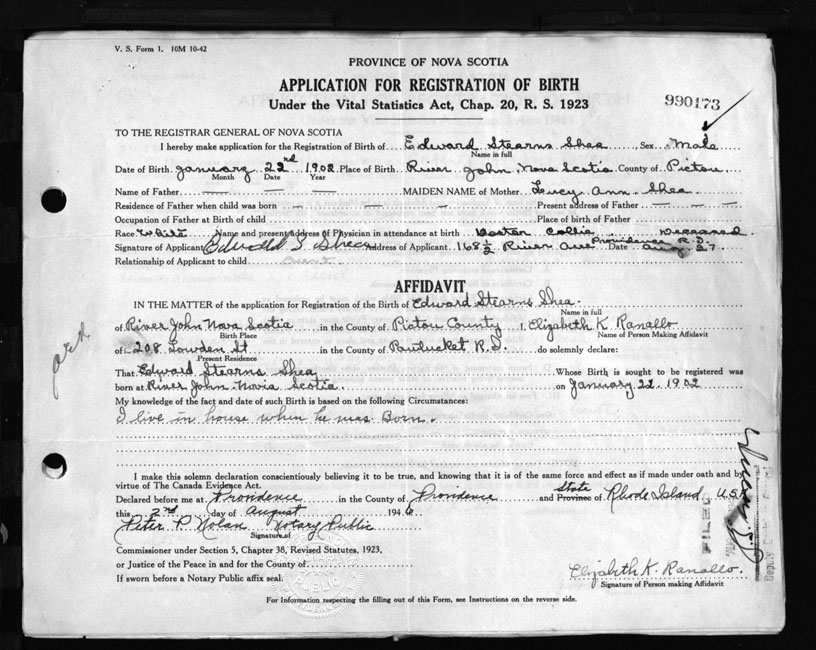 V. S. Form 1. 10M 10-42
PROVINCE OF NOVA SCOTIA
APPLICATION FOR REGISTRATION OF BIRTH
Under the Vital Statistics Act, Chap. 20, R. S. 1923
990173
TO THE REGISTRAR GENERAL OF NOVA SCOTIA
I hereby make application for the Registration of Birth of Edward Stearns Shea, Sex Male
Name in full
Date of Birth January 22nd 1902 Place of Birth River John, Nova Scotia County of Pictou
Month Date Year
Name of Father — — — MAIDEN NAME of Mother Lucy Ann Shea
Residence of Father when child was born — — — Present address of Father — —
Occupation of Father at Birth of child Place of birth of Father
Race White Name and present address of Physician in attendance at birth Doctor Collie Deceased
Signature of Applicant Edward S. Shea Address of Applicant 168½ River Ave Providence R.I. Date Aug 27
Relationship of Applicant to child
AFFIDAVIT
IN THE MATTER of the application for Registration of the Birth of Edward Stearns Shea
Name in full
of River John Nova Scotia in the County of Pictou County I, Elizabeth K. Ranallo
Birth Place Name of Person Making Affidavit
of 208 Lowden St in the County of Pawtucket R.I. do solemnly declare:
Present Residence
That Edward Stearns Shea Whose Birth is sought to be registered was
born at River John Nova Scotia. on January 22, 1902
My knowledge of the fact and date of such Birth is based on the following Circumstances:
I live in house when he was Born.
I make this solemn declaration conscientiously believing it to be true, and knowing that it is of the same force and effect as if made under oath and by
virtue of The Canada Evidence Act.
Declared before me at Providence in the County of Providence and State Province of Rhode Island, U.S.A
this 2nd day of August 1946
Peter P. Nolan Notary Public
Signature of
Commissioner under Section 5, Chapter 38, Revised Statutes, 1923,
or Justice of the Peace in and for the County of
If sworn before a Notary Public affix seal.
Elizabeth K. Ranallo
Signature of Person making Affidavit
For Information respecting the filling out of this Form, see Instructions on the reverse side.
FILED